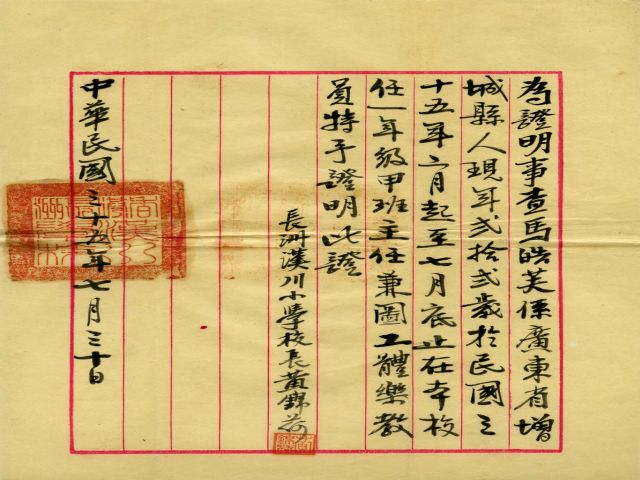 為證明事查馬皓芙係廣東省增
城縣人現年弍拾弍歲於民國三
十五年二月起至七月底止在本校
任一年級甲班主任兼圖工體樂教
員特予證明此證
長洲漢川小學校長黃錦芬
中華民國三十五年七月三十日